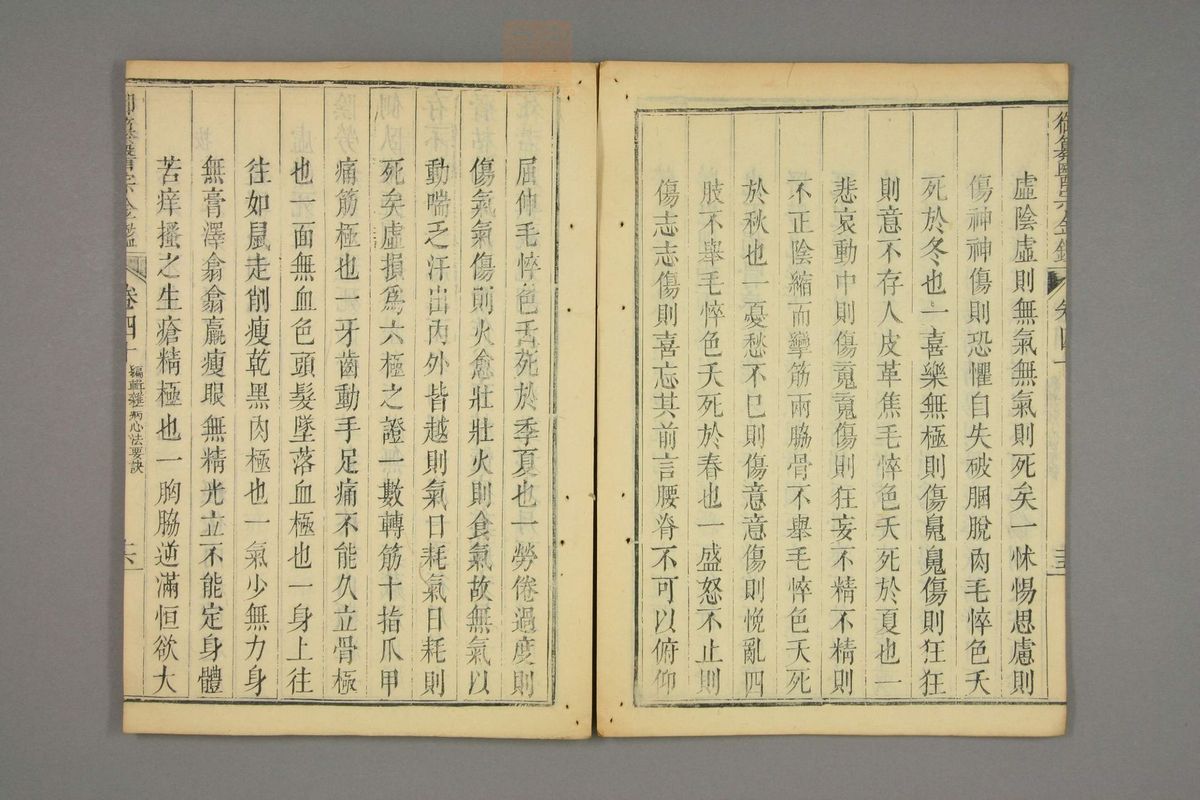 御纂醫宗金鑑
虛陰虛則無氣無氣則死矣一怵惕思慮則
傷神神傷則恐懼自失破䐃脫肉毛悴色夭
死於冬也一喜樂無極則傷魄魄傷則狂狂
則意不存人皮革焦毛悴色夭死於夏也一
悲哀動中則傷䰟䰟傷則狂妄不精不精則
不正陰縮而攣筋兩脇骨不舉毛悴色夭死
於秋也一憂愁不已則傷意意傷則悗亂四
肢不舉毛悴色夭死於春也一盛怒不止則
傷志志傷則喜忘其前言腰脊不可以俯仰
屈伸毛悴色夭死於季夏也一勞倦過度則
傷氣氣傷則火愈壯壯火則食氣故無氣以
動喘乏汗出內外皆越則氣日耗氣日耗則
死矣虛損爲六極之證一數轉筋十指爪甲
痛筋極也一牙齒動手足痛不能久立骨極
也一面無血色頭髮墜落血極也一身上往
往如鼠走削瘦乾黑肉極也一氣少無力身
無膏澤翕翕羸瘦眼無精光立不能定身體
苦痒搔之生瘡精極也一胸脇逆滿恒欲大
御纂醫宗金鑑
卷四十
編輯雜病心法要訣
六